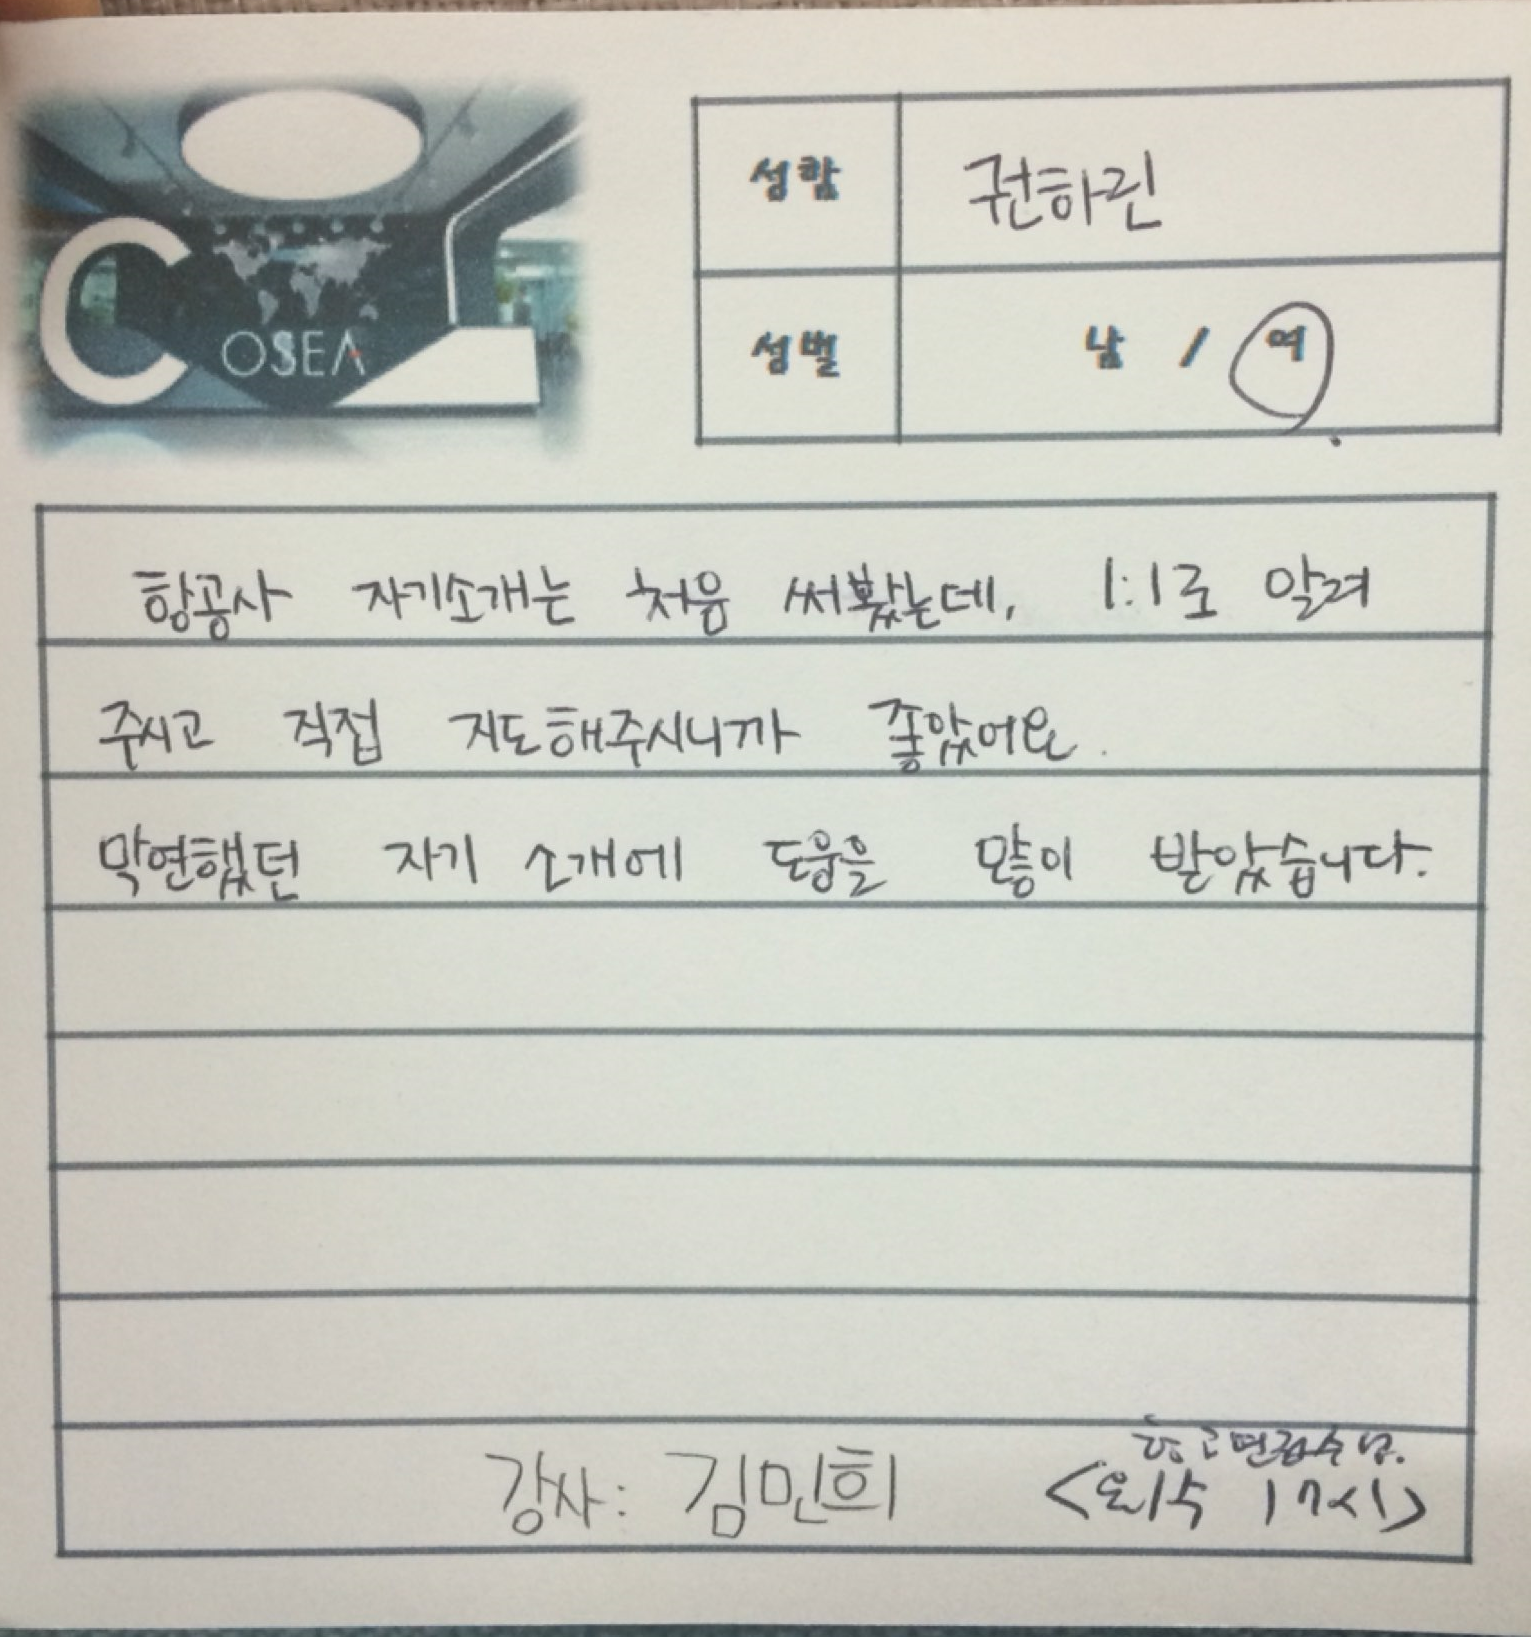 COSEA
성함 권하린
성별 남 / 여
항공사 자기소개는 처음 써봤는데, 1:1로 알려
주시고 직접 지도해주시니까 좋았어요.
막연했던 자기 소개에 도움을 많이 받았습니다.
강사: 김민희
<월/수 17시>